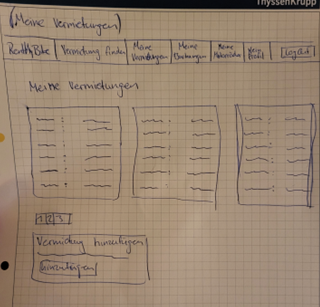 ThyssenKrupp
(Meine Vermietungen)
RentMyBike Vermietung finden Meine Vermietungen Meine Buchungen Meine Motorräder Mein Profil Logout
Meine Vermietungen
1 2 3
Vermietung hinzufügen
hinzufügen